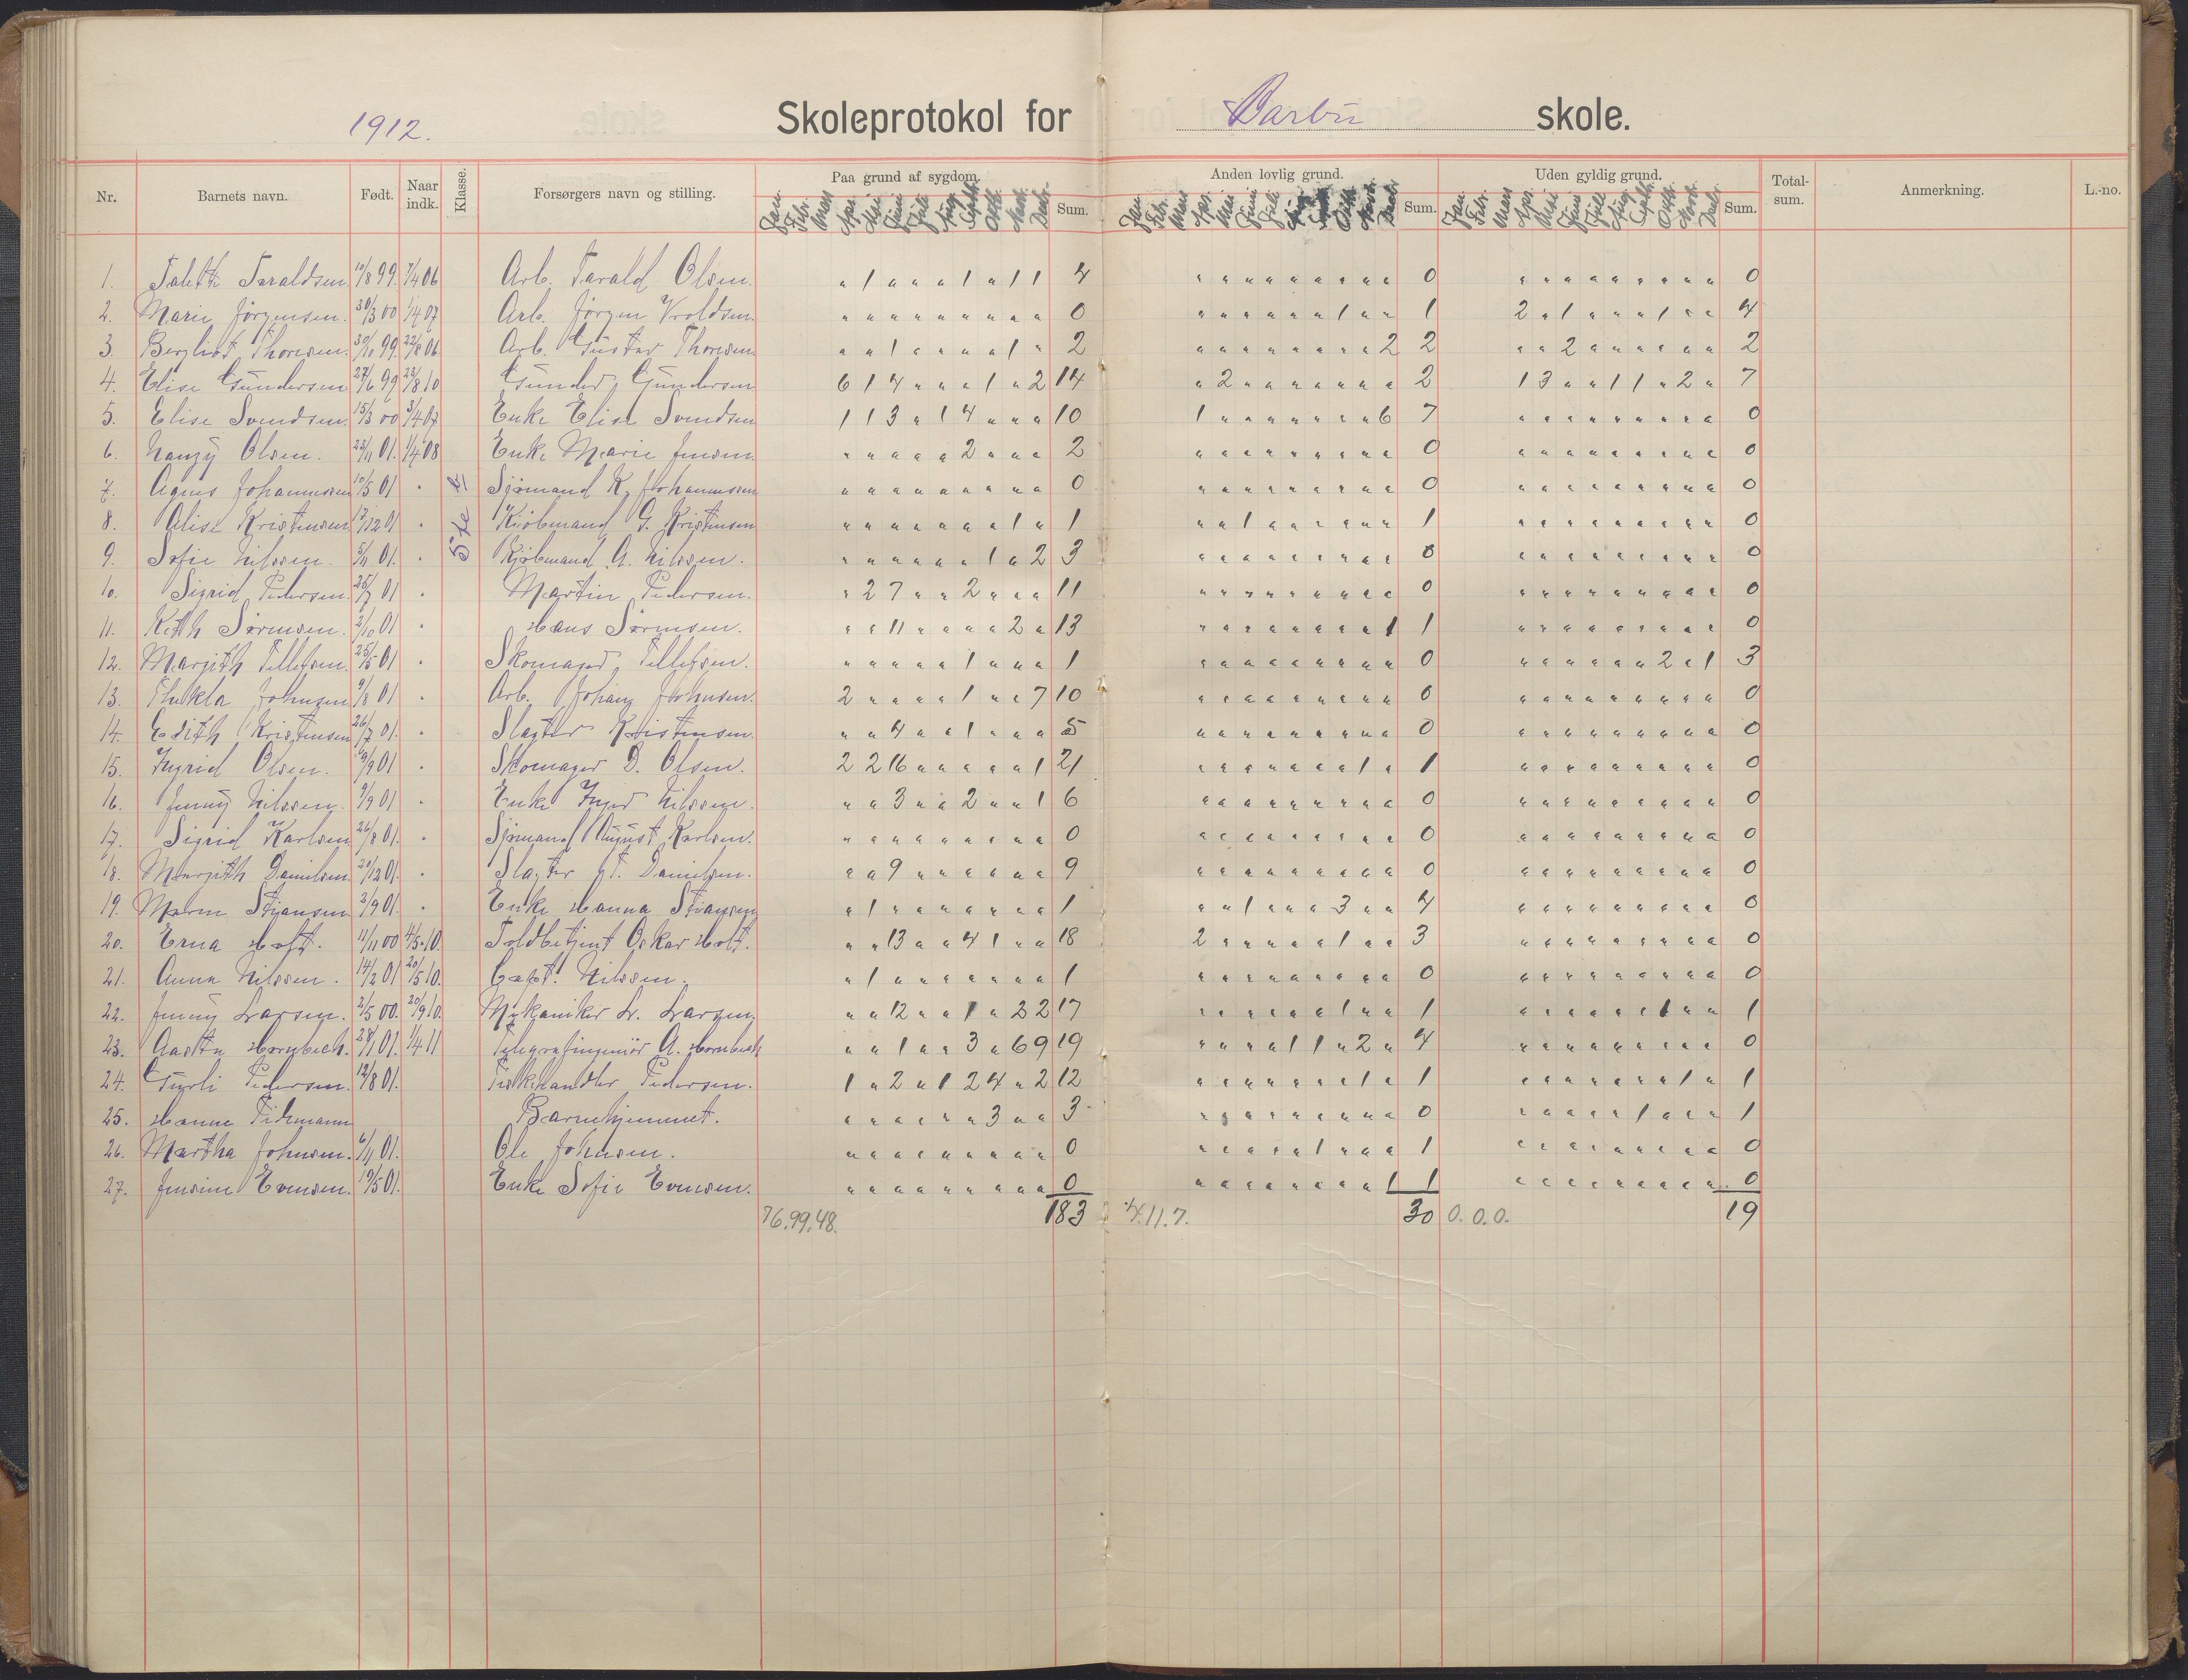 1912. Skoleprotokol for Barbu skole.
Nr. Barnets navn. Født. Naar indk. Klasse. Forsørgers navn og stilling. Paa grund af sygdom. Sum. Anden lovlig grund. Sum. Uden gyldig grund. Sum. Total-sum. Anmerkning. L.-no.
Jan Febr. Mars Apr. Mai Juni Juli Aug. Septb. Oktb. Novb. Decb. Jan Febr. Mars Apr. Mai Juni Juli Aug. Septb. Oktb. Novb. Decb. Jan Febr. Mars Apr. Mai Juni Juli Aug. Septb. Oktb. Novb. Decb.
1. Taraldsen 10/8 99. 7/4 06 Arb. Tarald Olsen. " 1 " " " 1 " 1 1 4 " " " " " " " " " 0 " " " " " " " " " 0
2. Marie Jörgensen. 30/3 00 1/4 07 Arb. Jörgen Vroldsen. " " " " " " " " " 0 " " " " " " 1 " " 1 2 " 1 " " " 1 " " 4
3. Bergliot Thoresen. 30/10 99. 22/8 06 Arb. Gustav Thoresen. " " 1 " " " " 1 " 2 " " " " " " " " 2 2 " " 2 " " " " " " 2
4. Elise Gundersen 27/6 99 23/8 10 Gunder Gundersen 6 1 4 " " " 1 " 2 14 " 2 " " " " " " " 2 1 3 " " 1 1 " 2 " 7
5. Elise Svendsen 15/3 00 3/4 07 Enke Elise Svendsen 1 1 3 " 1 4 " " " 10 1 " " " " " " " 6 7 " " " " " " " " " 0
6. Olsen. 23/11 01. 1/4 08 Enke Marie Jensen. " " " " " 2 " " " 2 " " " " " " " " " 0 " " " " " " " " " 0
7. Agnes Johannesen 10/5 01 " Sjömand K. Johannessen " " " " " " " " " 0 " " " " " " " " " 0 " " " " " " " " " 0
8. Alise Kristensen 17/12 01 " Kjöbmand G. Kristensen " " " " " " " 1 " 1 " " 1 " " " " " " 1 " " " " " " " " " 0
9. Sofie Nilssen. 5/11 01. " 5te Kjöbmand A. Nilssen. " " " " " " 1 " 2 3 " " " " " " " " " 0 " " " " " " " " " 0
10. Sigrid Pedersen. 25/7 01 " Martin Pedersen. " 2 7 " " 2 " " " 11 " " " " " " " " " 0 " " " " " " " " " 0
11. Sørensen. 2/10 01 " Hans Sørensen. " " 11 " " " " 2 " 13 " " " " " " " " 1 1 " " " " " " " " " 0
12. Margith Tellefsen. 25/5 01 " Skomager Tellefsen. " " " " " 1 " " " 1 " " " " " " " " " 0 " " " " " " 2 " 1 3
13. Thekla Johnsen 9/8 01 " Arb. Johan Johnsen. 2 " " " " 1 " " 7 10 " " " " " " " " " 0 " " " " " " " " " 0
14. Edith Kristensen 26/7 01. " Slagter Kristensen. " " 4 " " 1 " " " 5 " " " " " " " " " 0 " " " " " " " " " 0
15. Ingrid Olsen. 19/9 01 " Skomager D. Olsen. 2 2 16 " " " " " 1 21 " " " " " " " 1 " 1 " " " " " " " " " 0
16. Jenny Nilssen. 9/9 01 " Enke Inger Nilssen. " " 3 " " 2 " " 1 6 " " " " " " " " " 0 " " " " " " " " " 0
17. Sigrid Karlsen 26/8 01. " Sjömand August Karlsen. " " " " " " " " " 0 " " " " " " " " " 0 " " " " " " " " " 0
18. Margith Danielsen. 20/12 01. " Slagter Danielsen. " " 9 " " " " " " 9 " " " " " " " " " 0 " " " " " " " " " 0
19. Maren Stiansen 3/9 01. " Enke Hanna Stiansen " 1 " " " " " " " 1 " " 1 " " " 3 " " 4 " " " " " " " " " 0
20. Erna Holt. 11/11 00 4/5 10. Toldbetjent Oskar Holt. " " 13 " " 4 1 " " 18 2 " " " " " 1 " " 3 " " " " " " " " " 0
21. Anna Nilssen. 14/2 01 20/5 10. Capt. Nilssen. " 1 " " " " " " " 1 " " " " " " " " " 0 " " " " " " " " " 0
22. Jenny Larsen. 2/5 00. 20/9 10. Mekaniker L. Larsen. " " 12 " " 1 " 2 2 17 " " " " " " 1 " " 1 " " " " " " 1 " " 1
23. Aasta Hornbech. 28/11 01. 1/4 11 Telegrafingeniör A. Hornbech " " 1 " " 3 " 6 9 19 " " " " 1 1 " 2 " 4 " " " " " " " " " 0
24. Gurli Pedersen. 12/8 01. Fiskehandler Pedersen. 1 " 2 " 1 2 4 " 2 12 " " " " " " " 1 " 1 " " " " " " " 1 " 1
25. Hanna Tidemann Barnehjemmet. " " " " " " 3 " " 3 " " " " " " " " " 0 " " " " " 1 " " " 1
26. Martha Johnsen. 6/11 01. Ole Johnsen. " " " " " " " " " 0 " " " " " 1 " " " 1 " " " " " " " " " 0
27. Jensine Evensen. 19/5 01. Enke Sofie Evensen. " " " " " " " " " 0 " " " " " " " " 1 1 " " " " " " " " " 0
76. 99. 48. 183 4. 11. 7. 30 0. 0. 0. 19